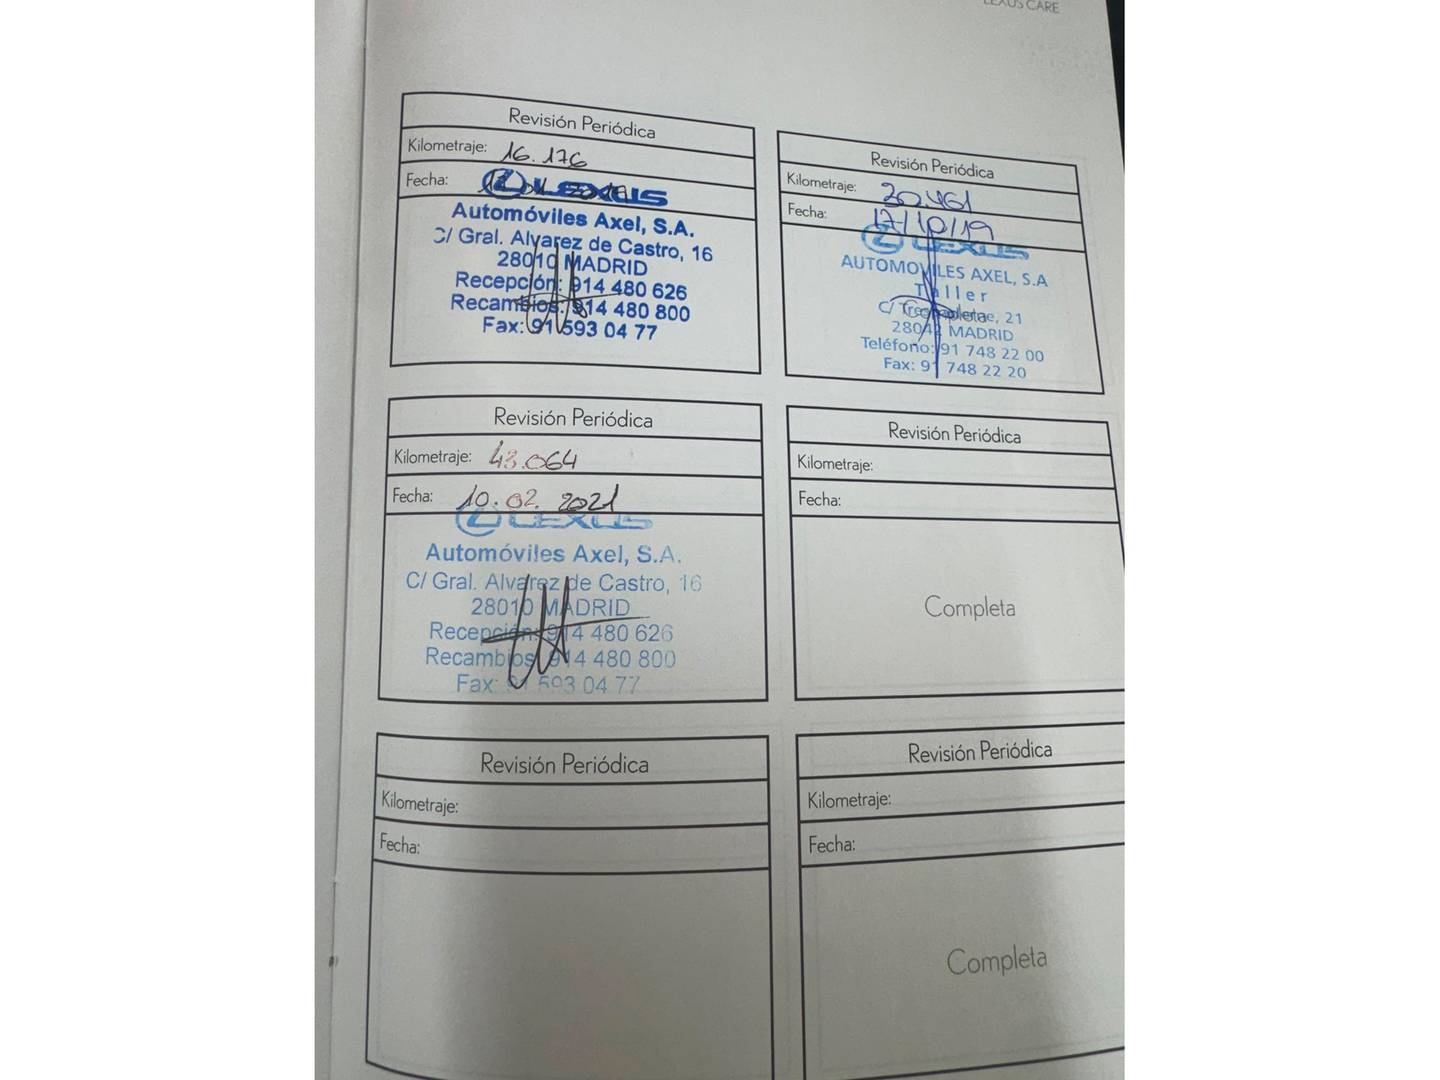 LEXUS CARE
Revisión Periódica
Kilometraje: 16.176
Fecha: 2019
LEXUS
Automóviles Axel, S.A.
C/ Gral. Alvarez de Castro, 16
28010 MADRID
Recepción: 914 480 626
Recambios: 914 480 800
Fax: 91 593 04 77
Revisión Periódica
Kilometraje: 30.461
Fecha: 17/10/19
LEXUS
AUTOMOVILES AXEL, S.A
Taller
C/ 21
28042 MADRID
Teléfono: 91 748 22 00
Fax: 91 748 22 20
Revisión Periódica
Kilometraje: 43.064
Fecha: 10.02.2021
LEXUS
Automóviles Axel, S.A.
C/ Gral. Alvarez de Castro, 16
28010 MADRID
Recepción: 914 480 626
Recambios: 914 480 800
Fax: 91 593 04 77
Revisión Periódica
Kilometraje:
Fecha:
Completa
Revisión Periódica
Kilometraje:
Fecha:
Revisión Periódica
Kilometraje:
Fecha:
Completa